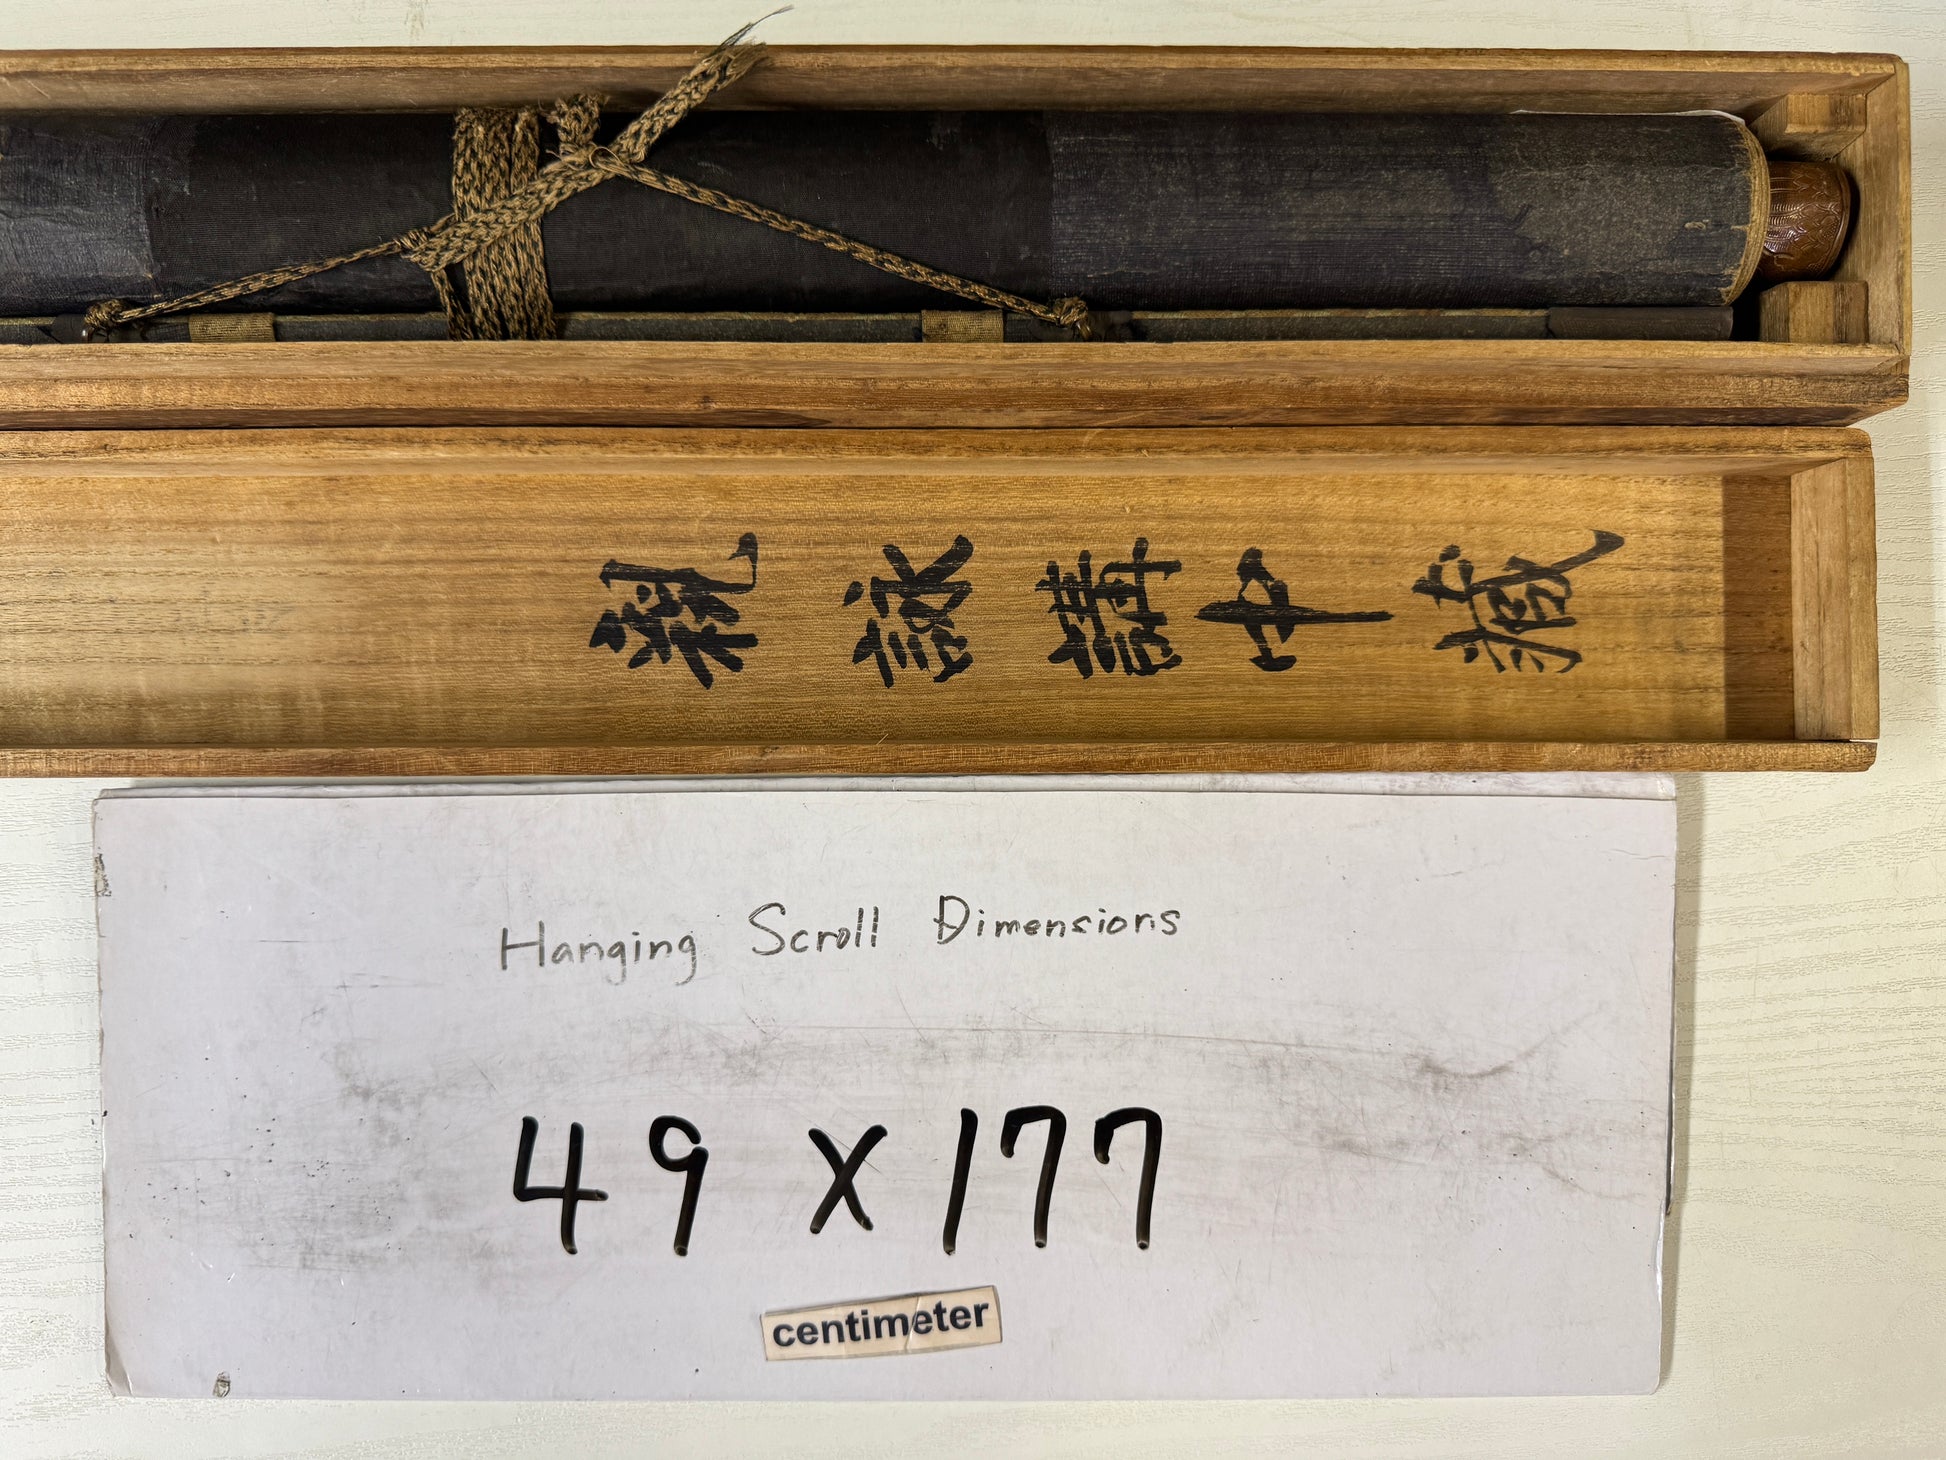 詠講中藏
Hanging Scroll Dimensions
49 X 177
centimeter